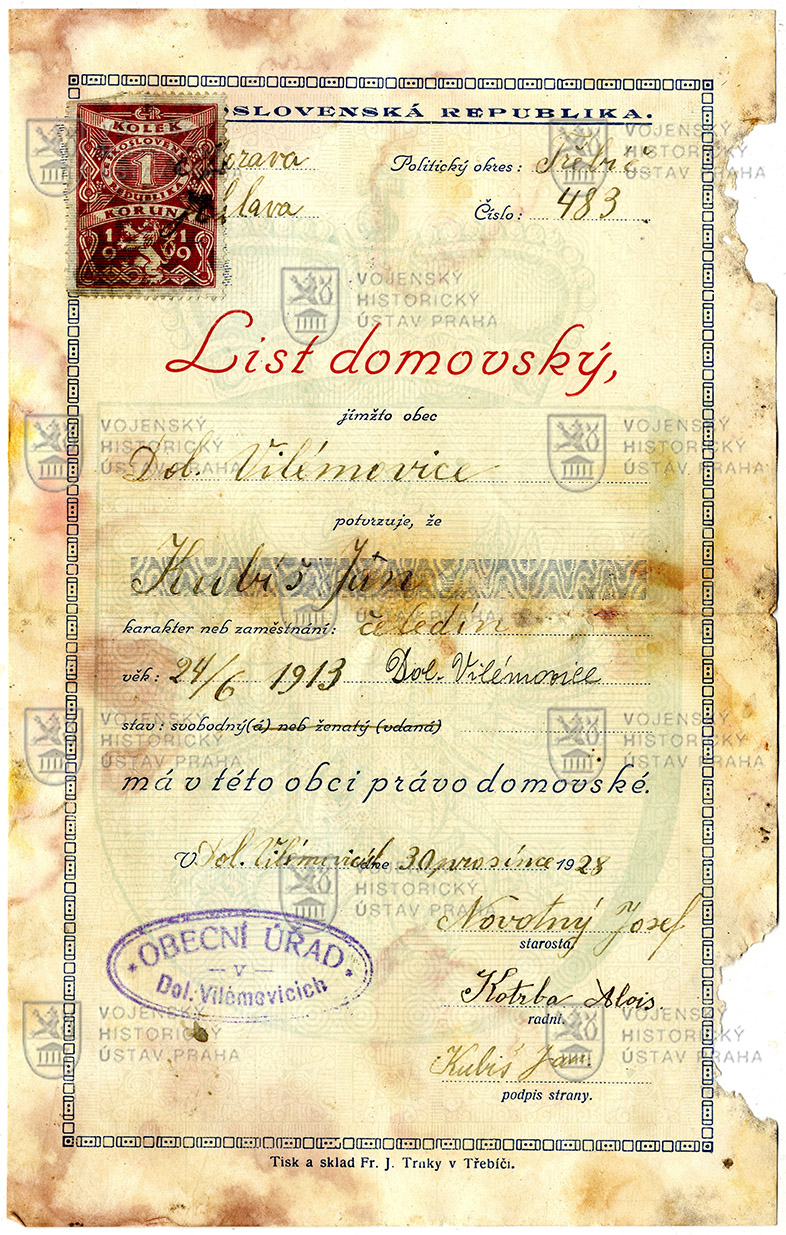 OSLOVENSKÁ REPUBLIKA.
KOLEK
ČESKOSLOVENSKÁ
1
REPUBLIKA
KORUNA
1919
Morava
Politický okres: Třebíč
Jihlava
Číslo: 483
List domovský,
jímžto obec
Dol. Vilémovice
potvrzuje, že
Kubiš Jan
karakter neb zaměstnání: čeledín
věk: 24/6 1913 Dol. Vilémovice
stav: svobodný(á) neb ženatý (vdaná)
má v této obci právo domovské.
V Dol. Vilémovicích dne 30 prosince 1928
Novotný Josef
starosta
OBECNÍ ÚŘAD
v
Dol. Vilémovicích
Kotrba Alois.
radní.
Kubiš Jan.
podpis strany.
Tisk a sklad Fr. J. Trnky v Třebíči.
VOJENSKÝ
HISTORICKÝ
ÚSTAV PRAHA